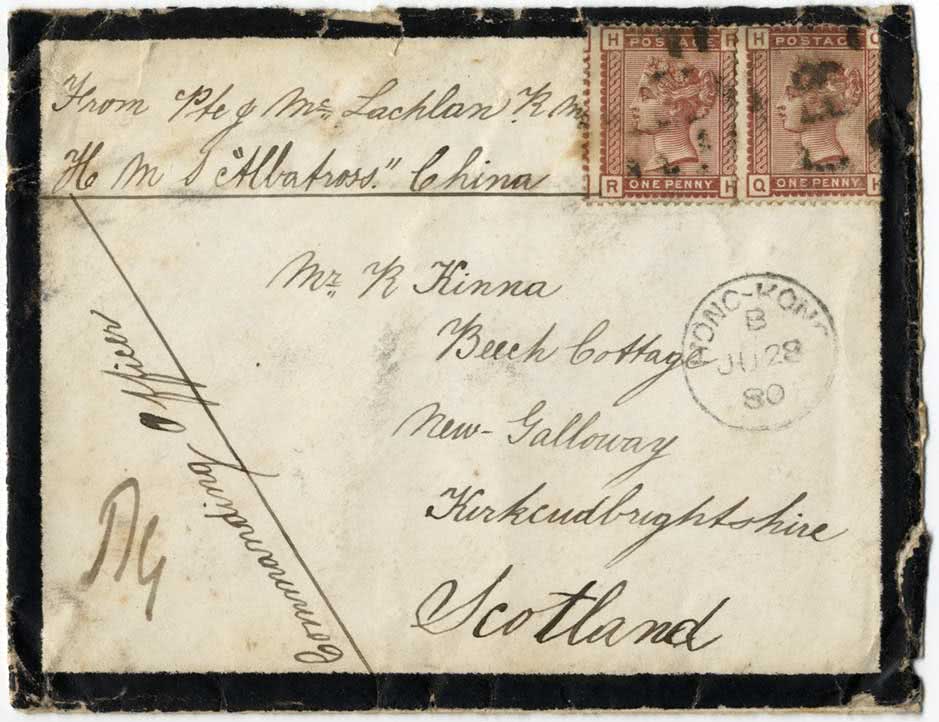 From Pte J Mc Lachlan R M
H M S "Albatross." China
H POSTAGE R
R ONE PENNY H
H POSTAG Q
Q ONE PENNY H
Mr R Kinna
Beech Cottage
New-Galloway
Kirkcudbrightshire
Scotland
HONG-KONG
B
JU 28
80
Commanding Officer